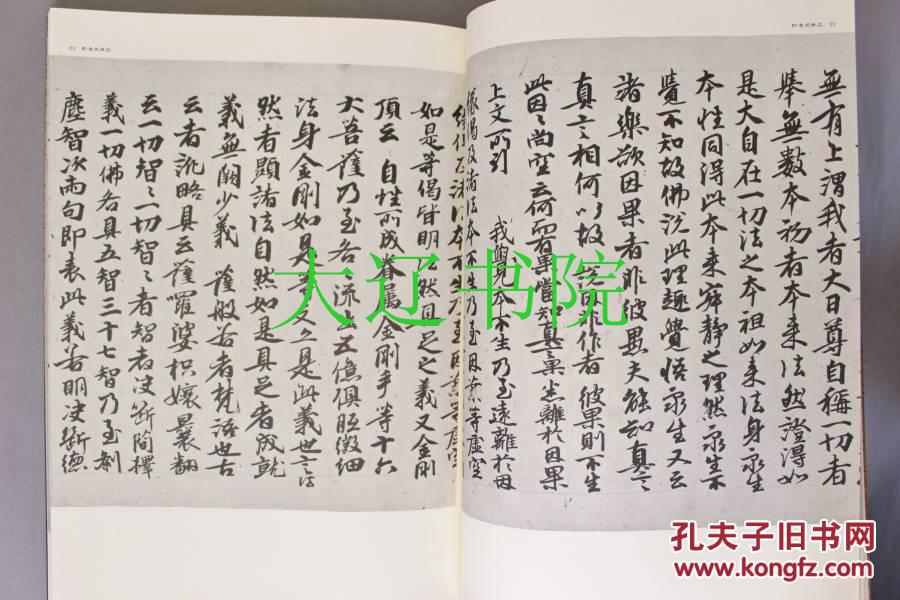 即身成佛品 22
無有上謂我者大日尊自稱一切者
擧無數本初者本來法然證得如
是大自在一切法之本祖如來法身衆生
本性同得此本來寂靜之理然衆生不
覺不知故佛説此理趣覺悟衆生又云
諸樂欲因果者非彼愚夫能知眞言
眞言相何以故説因非作者彼果則不生
此因因尚空云何而有果當知眞言果悉離於因果
上文所引 我覺本不生乃至遠離於因
縁偈及諸法本不生乃至因業等虚空
23 即身成佛品
如是等偈皆明法然具足之義又金剛
頂云 自性所成眷屬金剛手等十六
大菩薩乃至各流出五億俱胝微細
法身金剛如是等文亦是此義也言法
然者顯諸法自然如是具足者成就
義無闕少義 薩般若者梵語也古
云者訛略具云薩囉婆枳孃曩翻
云一切智智一切智智者智者决斷簡擇
義一切佛各具五智三十七智乃至刹
塵智次兩句即表此義若明决斷德
大辽书院
孔夫子旧书网
www.kongfz.com